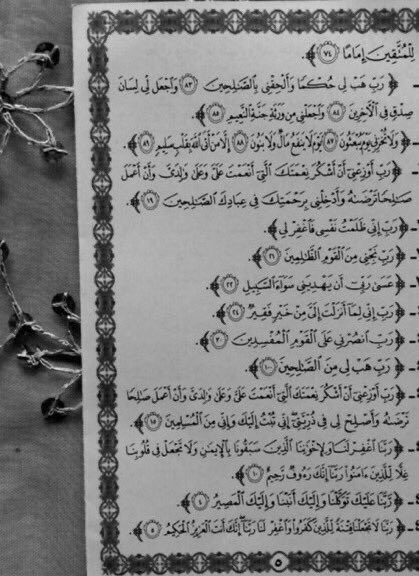 لِلْمُتَّقِينَ إِمَامًا ﴿٧٤﴾.
ـ ﴿رَبِّ هَبْ لِى حُكْمًا وَأَلْحِقْنِى بِالصَّـٰلِحِينَ ﴿٨٣﴾ وَاجْعَل لِّى لِسَانَ
صِدْقٍ فِى الْآخِرِينَ ﴿٨٤﴾ وَاجْعَلْنِى مِن وَرَثَةِ جَنَّةِ النَّعِيمِ ﴿٨٥﴾.
ـ ﴿وَلَا تُخْزِنِى يَوْمَ يُبْعَثُونَ ﴿٨٧﴾ يَوْمَ لَا يَنفَعُ مَالٌ وَلَا بَنُونَ ﴿٨٨﴾ إِلَّا مَنْ أَتَى اللَّهَ بِقَلْبٍ سَلِيمٍ ﴿٨٩﴾.
ـ ﴿رَبِّ أَوْزِعْنِى أَنْ أَشْكُرَ نِعْمَتَكَ الَّتِى أَنْعَمْتَ عَلَىَّ وَعَلَىٰ وَالِدَىَّ وَأَنْ أَعْمَلَ
صَـٰلِحًا تَرْضَـٰهُ وَأَدْخِلْنِى بِرَحْمَتِكَ فِى عِبَادِكَ الصَّـٰلِحِينَ ﴿١٩﴾.
ـ ﴿رَبِّ إِنِّى ظَلَمْتُ نَفْسِى فَاغْفِرْ لِى﴾.
ـ ﴿رَبِّ نَجِّنِى مِنَ الْقَوْمِ الظَّـٰلِمِينَ ﴿٢١﴾.
ـ ﴿عَسَىٰ رَبِّى أَن يَهْدِيَنِى سَوَآءَ السَّبِيلِ ﴿٢٢﴾.
ـ ﴿رَبِّ إِنِّى لِمَآ أَنزَلْتَ إِلَىَّ مِنْ خَيْرٍ فَقِيرٌ ﴿٢٤﴾.
ـ ﴿رَبِّ انصُرْنِى عَلَى الْقَوْمِ الْمُفْسِدِينَ ﴿٣٠﴾.
ـ ﴿رَبِّ هَبْ لِى مِنَ الصَّـٰلِحِينَ ﴿١٠٠﴾.
ـ ﴿رَبِّ أَوْزِعْنِى أَنْ أَشْكُرَ نِعْمَتَكَ الَّتِى أَنْعَمْتَ عَلَىَّ وَعَلَىٰ وَالِدَىَّ وَأَنْ أَعْمَلَ صَـٰلِحًا
تَرْضَـٰهُ وَأَصْلِحْ لِى فِى ذُرِّيَّتِىٓ إِنِّى تُبْتُ إِلَيْكَ وَإِنِّى مِنَ الْمُسْلِمِينَ ﴿١٥﴾.
ـ ﴿رَبَّنَا اغْفِرْ لَنَا وَلِإِخْوَٰنِنَا الَّذِينَ سَبَقُونَا بِالْإِيمَـٰنِ وَلَا تَجْعَلْ فِى قُلُوبِنَا
غِلًّا لِّلَّذِينَ ءَامَنُوا رَبَّنَآ إِنَّكَ رَءُوفٌ رَّحِيمٌ ﴿١٠﴾.
ـ ﴿رَّبَّنَا عَلَيْكَ تَوَكَّلْنَا وَإِلَيْكَ أَنَبْنَا وَإِلَيْكَ الْمَصِيرُ ﴿٤﴾.
ـ ﴿رَبَّنَا لَا تَجْعَلْنَا فِتْنَةً لِّلَّذِينَ كَفَرُوا وَاغْفِرْ لَنَا رَبَّنَآ إِنَّكَ أَنتَ الْعَزِيزُ الْحَكِيمُ ﴿٥﴾.
٥